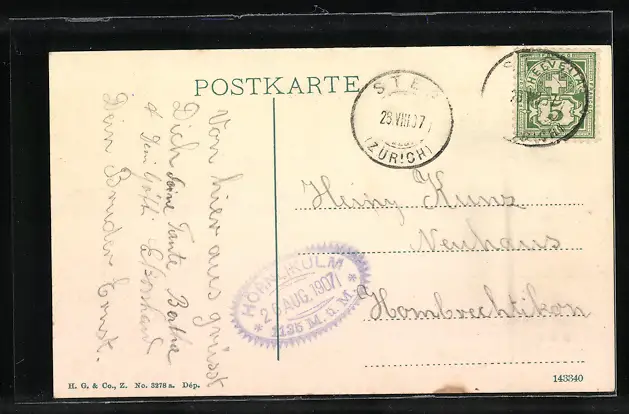 POSTKARTE
STEFA
26.VIII.07
(ZÜRICH)
HELVETIA
5
Von hier aus grüsst
Dich deine Tante Bertha
& Dein Götti
Dein Bruder Ernst.
Heiny Kunz
Neuhaus
Hombrechtikon
HÖRNLIKULM
26 AUG. 1907
* 1135 M. ü M. *
H. G. & Co., Z. No. 3278 a. Dép.
143340